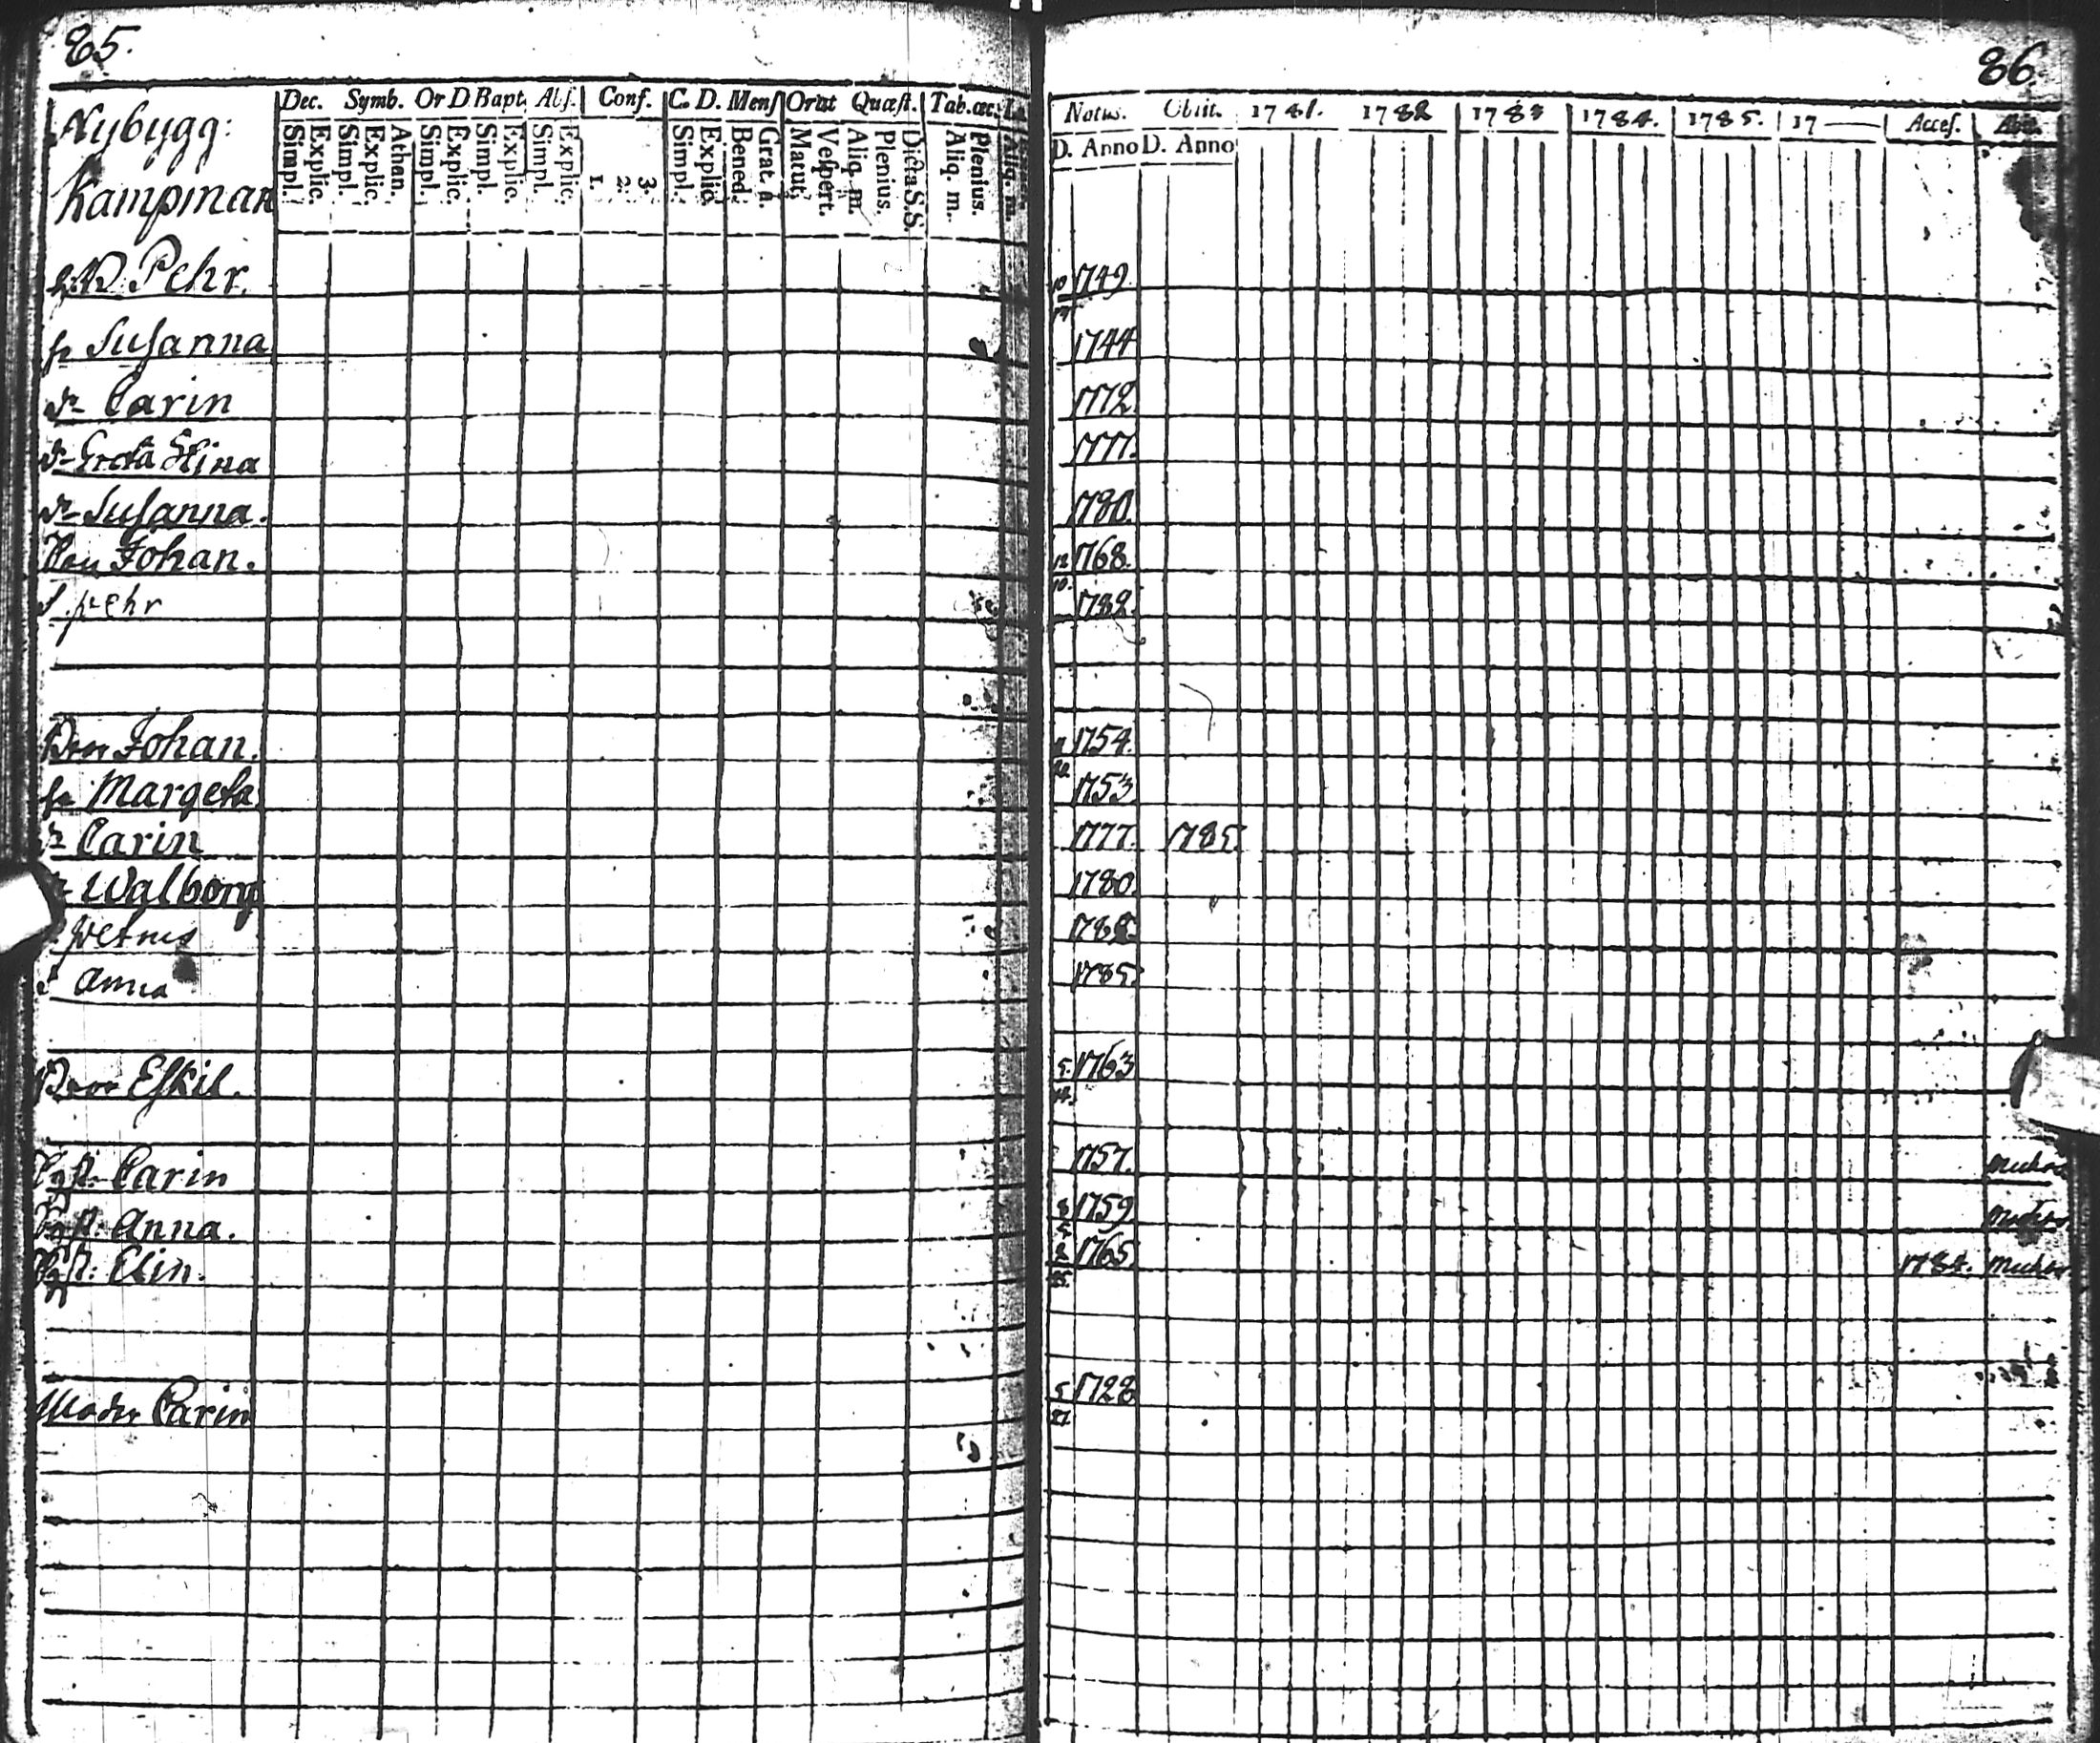 85.
86.
Nybygg:
Kampman
Dec. Symb. Or D Bapt. Abs. Conf. C. D. Mens Orat Quæst. Tab. œc.
Simpl. Explic. Simpl. Explic. Athan. Simpl. Explic. Simpl. Explic. Simpl. Explic. 1. 2. 3. Simpl. Explic. Bened. Grat. a. Matut. Vespert. Aliq. m. Plenius. Dicta S.S. Aliq. m. Plenius. Aliq. m.
Natus. Obiit. 1781. 1782 1783 1784. 1785. 17 Acces. Abit.
D. Anno D. Anno
Pehr. 1749.
h Susanna 1744
dr Carin 1772.
dr Greta Stina 1777.
dr Susanna. 1780.
Johan. 12 10. 1768.
S. pehr 1782.
Bror Johan. 1754.
h Margeta 1753
dr Carin 1777. 1785.
Walborg 1780.
petrus 1782
Anna 1785.
Bror Eskil. 5. 14. 1763
Carin 1757.
Anna. 1759
Elin. 1765 1784.
Moder Carin 5 1728